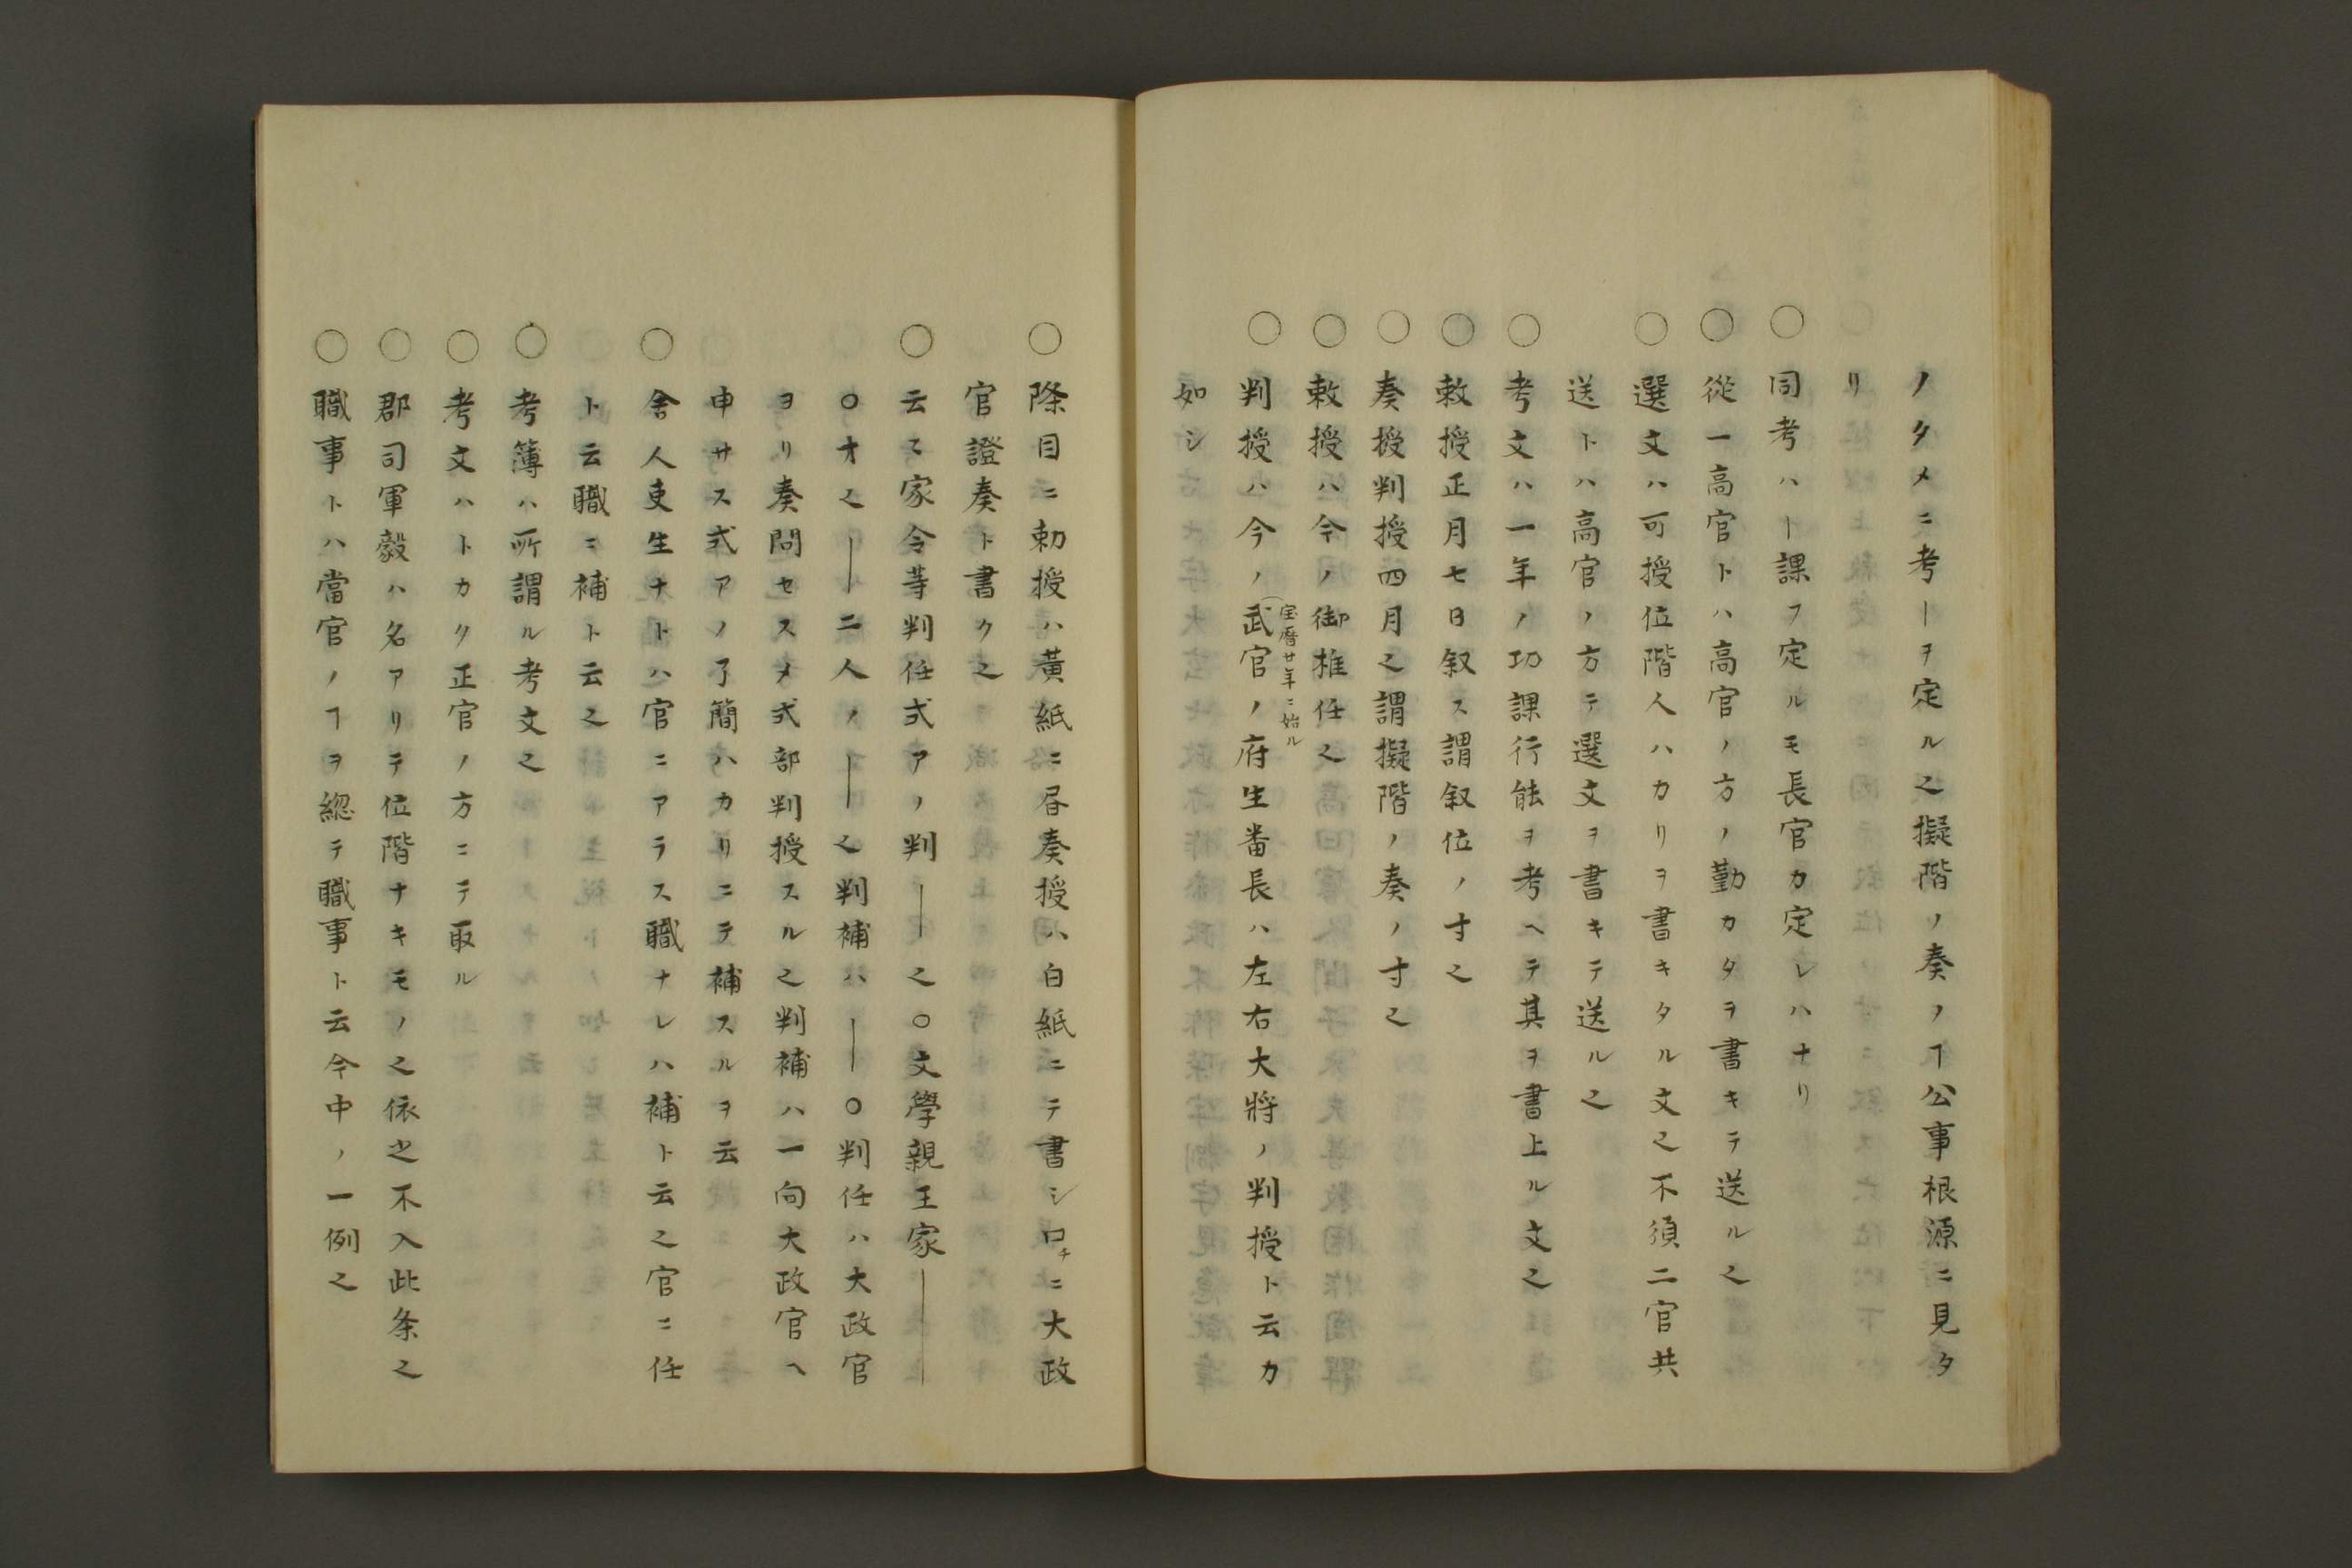 ノタメニ考ーヲ定ル之擬階ノ奏ノヿ公事根源ニ見タ
リ
○同考ハー課フ定ルモ長官カ定レハナリ
○從一高官トハ高官ノ方ノ勤カタヲ書キテ送ル之
○選文ハ可授位階人ハカリヲ書キタル文之不須二官共
送トハ高官ノ方テ選文ヲ書キテ送ル之
○考文ハ一年ノ功課行能ヲ考ヘテ其ヲ書上ル文之
○敕授正月七日叙ス謂叙位ノ寸之
○奏授判授四月之謂擬階ノ奏ノ寸之
○敕授ハ今ノ御推任之
○判授ハ今ノ武官ノ府生番長ハ左右大將ノ判授ト云カ
宝暦廿年ニ始ル
如シ
○除目ニ勅授ハ黄紙ニ昼奏授ハ白紙ニテ書シ口チニ大政
官證奏ト書ク之
○云云家令䓁判任式アノ判——之○文學親王家——
○才之—二人ノ—之判補ハ—○判任ハ大政官
ヨリ奏問セスメ式部判授スル之判補ハ一向大政官ヘ
申サス式アノ了簡ハカリニテ補スルヲ云
○舍人吏生ナトハ官ニアラス職ナレハ補ト云之官ニ任
ト云職ニ補ト云之
○考簿ハ所謂ル考文之
○考文ハトカク正官ノ方ニテ取ル
○郡司軍毅ハ名アリテ位階ナキモノ之依之不入此条之
○職事トハ當官ノヿヲ総テ職事ト云令中ノ一例之